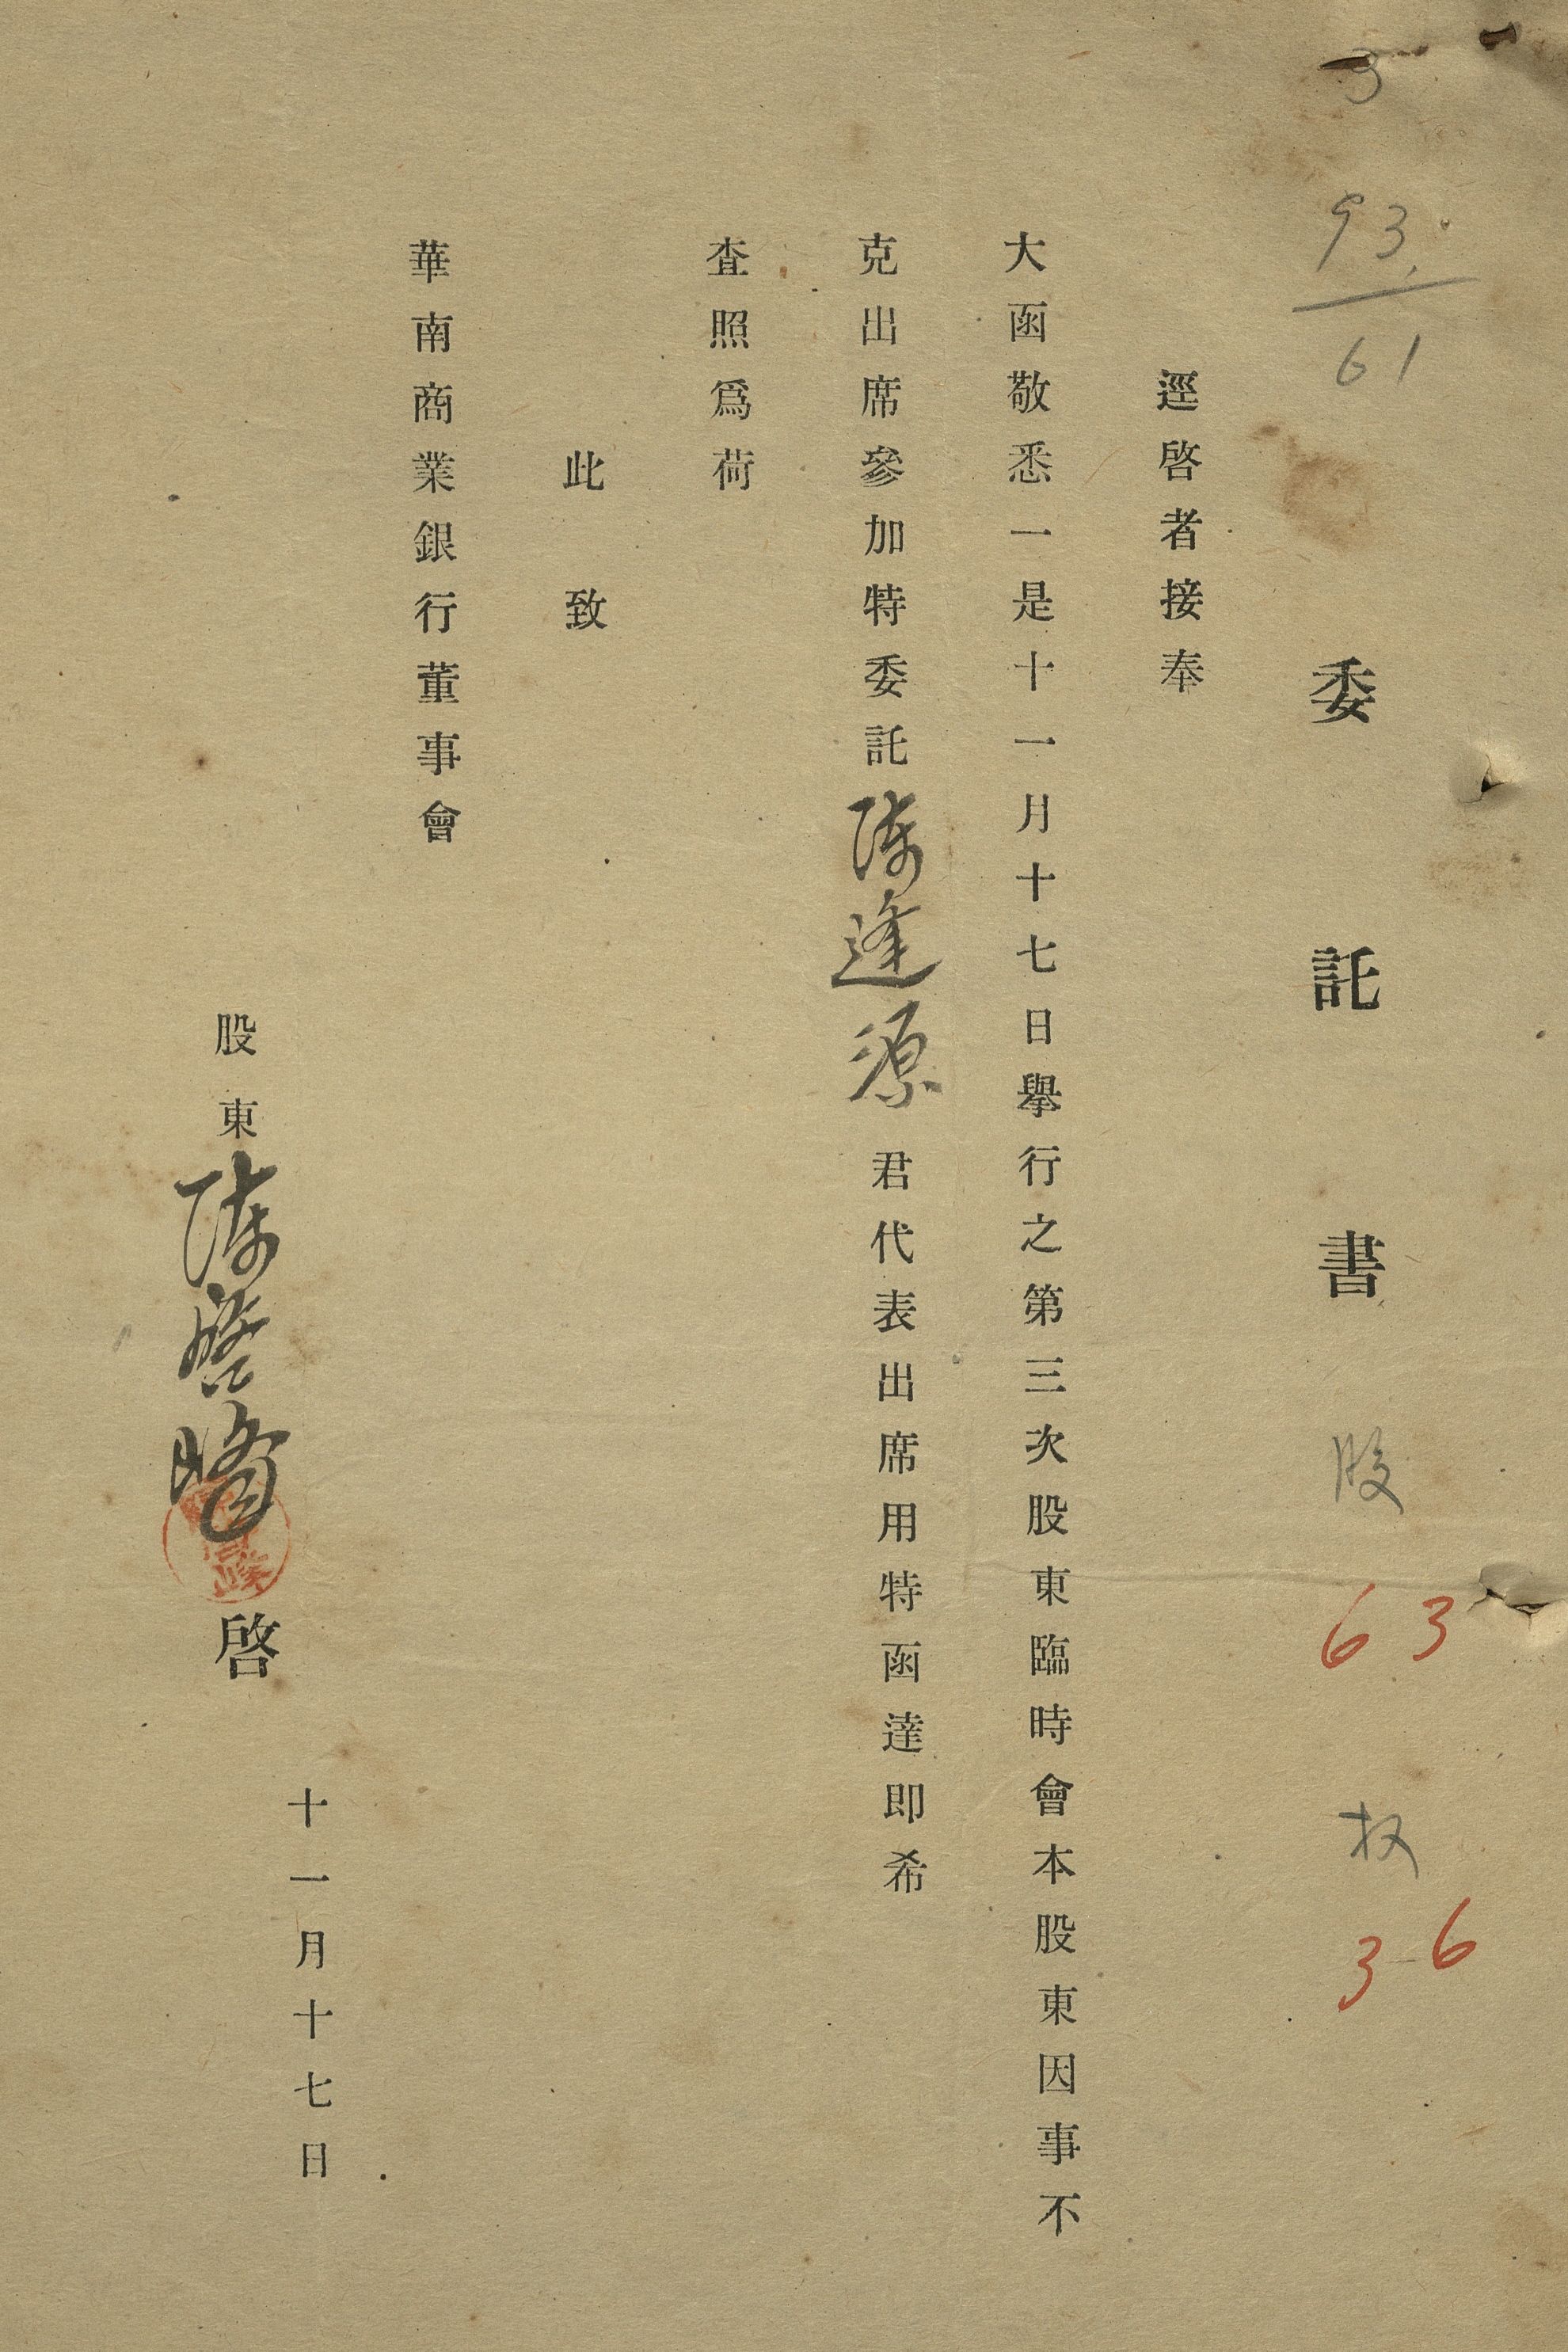 3
93
61
委託書 股 63 权 36
逕啓者接奉
大函敬悉一是十一月十七日舉行之第三次股東臨時會本股東因事不
克出席參加特委託陳逢源君代表出席用特函達即希
査照爲荷
此致
華南商業銀行董事會
十一月十七日
股東陳啓峰啓